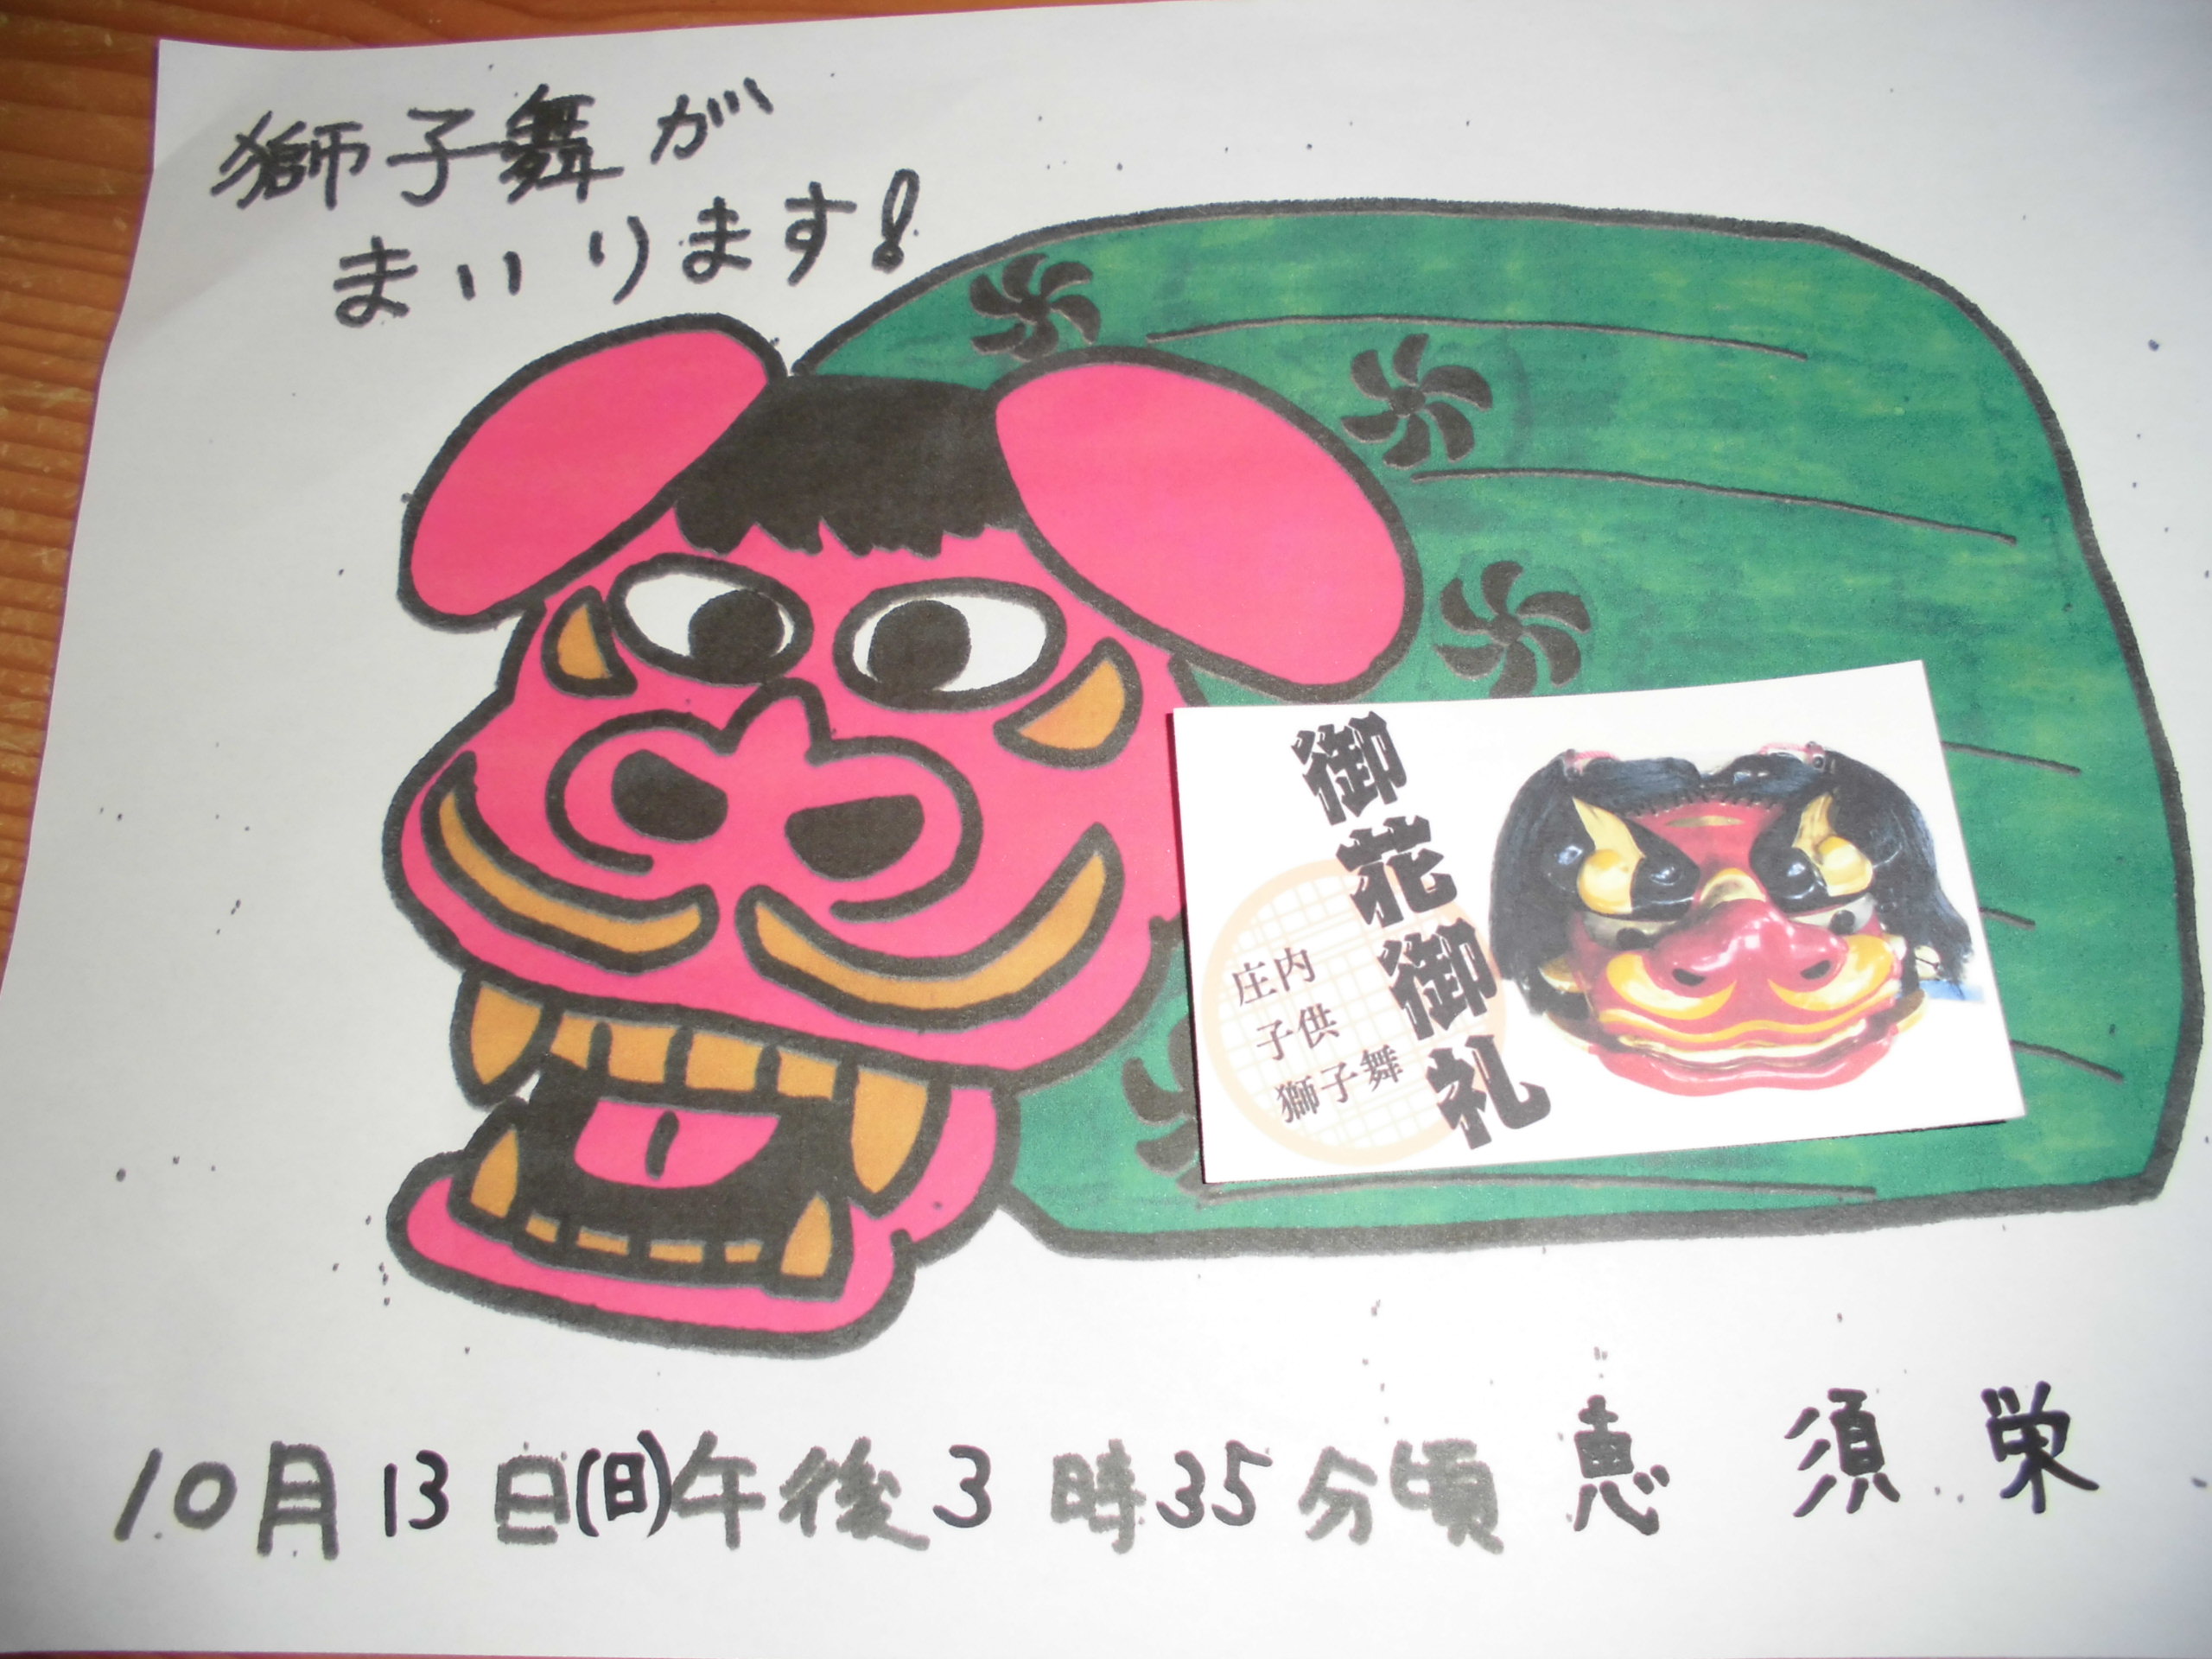 獅子舞が
まいります!
御花御礼
庄内
子供
獅子舞
10月13日(日)午後3時35分頃 恵須栄